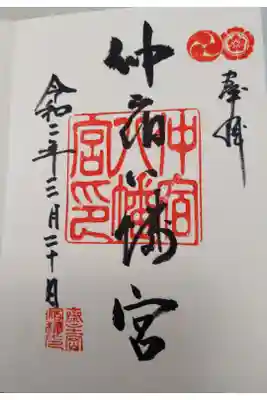 奉拝
仲宿八幡宮
仲宿八幡宮印
令和二年二月二十日